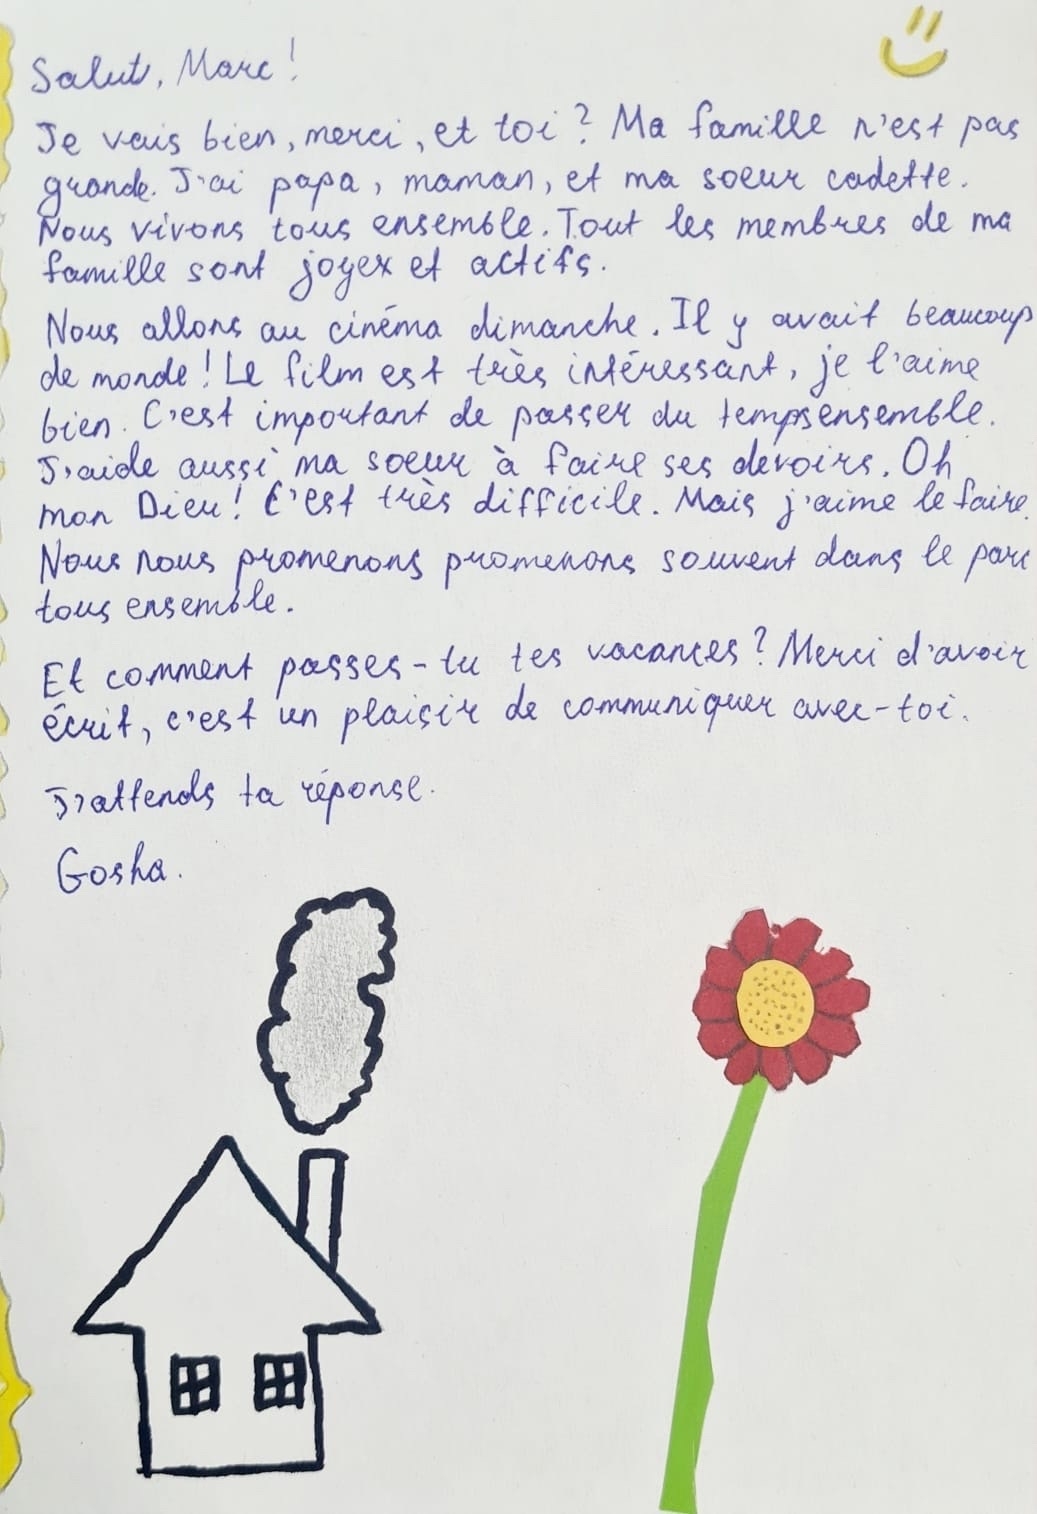 Salut, Marc!
Je vais bien, merci, et toi? Ma famille n'est pas
grande. J'ai papa, maman, et ma soeur cadette.
Nous vivons tous ensemble. Tout les membres de ma
famille sont joyex et actifs.
Nous allons au cinéma dimanche. Il y avait beaucoup
de monde! Le film est très intéressant, je l'aime
bien. C'est important de passer du temps ensemble.
J'aide aussi ma soeur à faire ses devoirs. Oh
mon Dieu! C'est très difficile. Mais j'aime le faire.
Nous nous promenons promenons souvent dans le parc
tous ensemble.
Et comment passes-tu tes vacances? Merci d'avoir
écrit, c'est un plaisir de communiquer avec-toi.
J'attends ta réponse.
Gosha.